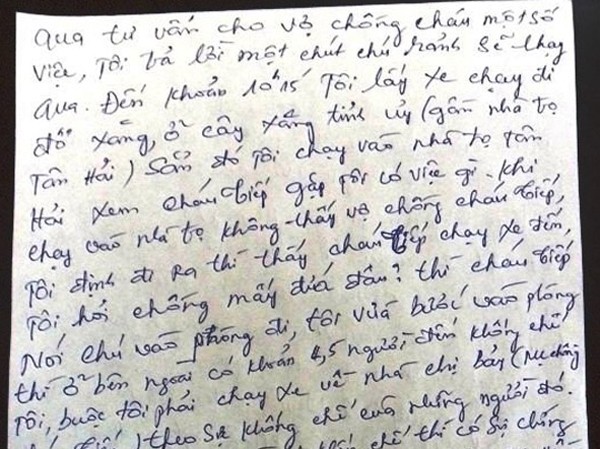 Qua tư vấn cho vợ chồng cháu một số
việc, tôi trả lời một chút chú rảnh sẽ chạy
qua. Đến khoản 10h15 Tôi lấy xe chạy đi
đổ xăng, ở cây xăng tỉnh ủy (gần nhà trọ
Tân Hải) Sẵn đó tôi chạy vào nhà trọ tân
Hải xem cháu tiếp gặp tôi có việc gì. Khi
chạy vào nhà trọ không thấy vợ chồng cháu tiếp,
Tôi định đi ra thì thấy cháu tiếp chạy xe đến,
Tôi hỏi chồng mấy đứa đâu? thì cháu tiếp
Nói chú vào phòng đi, tôi vừa bước vào phòng
thì ở bên ngoài có khoản 4,5 người đến khống chế
Tôi, buộc tôi phải chạy xe về nhà chị bảy (mẹ chồng
) theo sự khống chế của những người đó.
chế thì có sự chứng